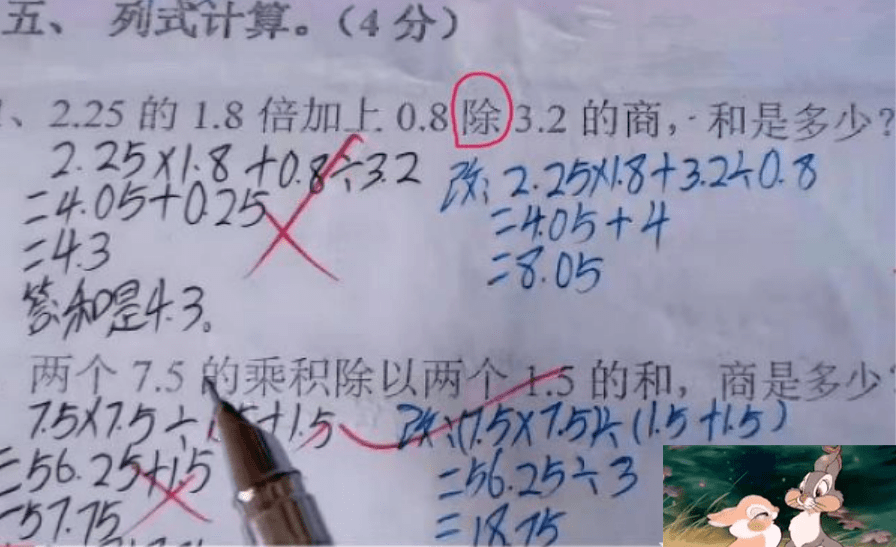 五、 列式计算。（4分）
、2.25 的 1.8 倍加上 0.8 除 3.2 的商，和是多少？
2.25×1.8+0.8÷3.2
=4.05+0.25
=4.3
答:和是4.3。
改: 2.25×1.8+3.2÷0.8
=4.05+4
=8.05
两个 7.5 的乘积除以两个 1.5 的和，商是多少
7.5×7.5÷1.5+1.5
=56.25+1.5
=57.75
改:(7.5×7.5)÷(1.5+1.5)
=56.25÷3
=18.75